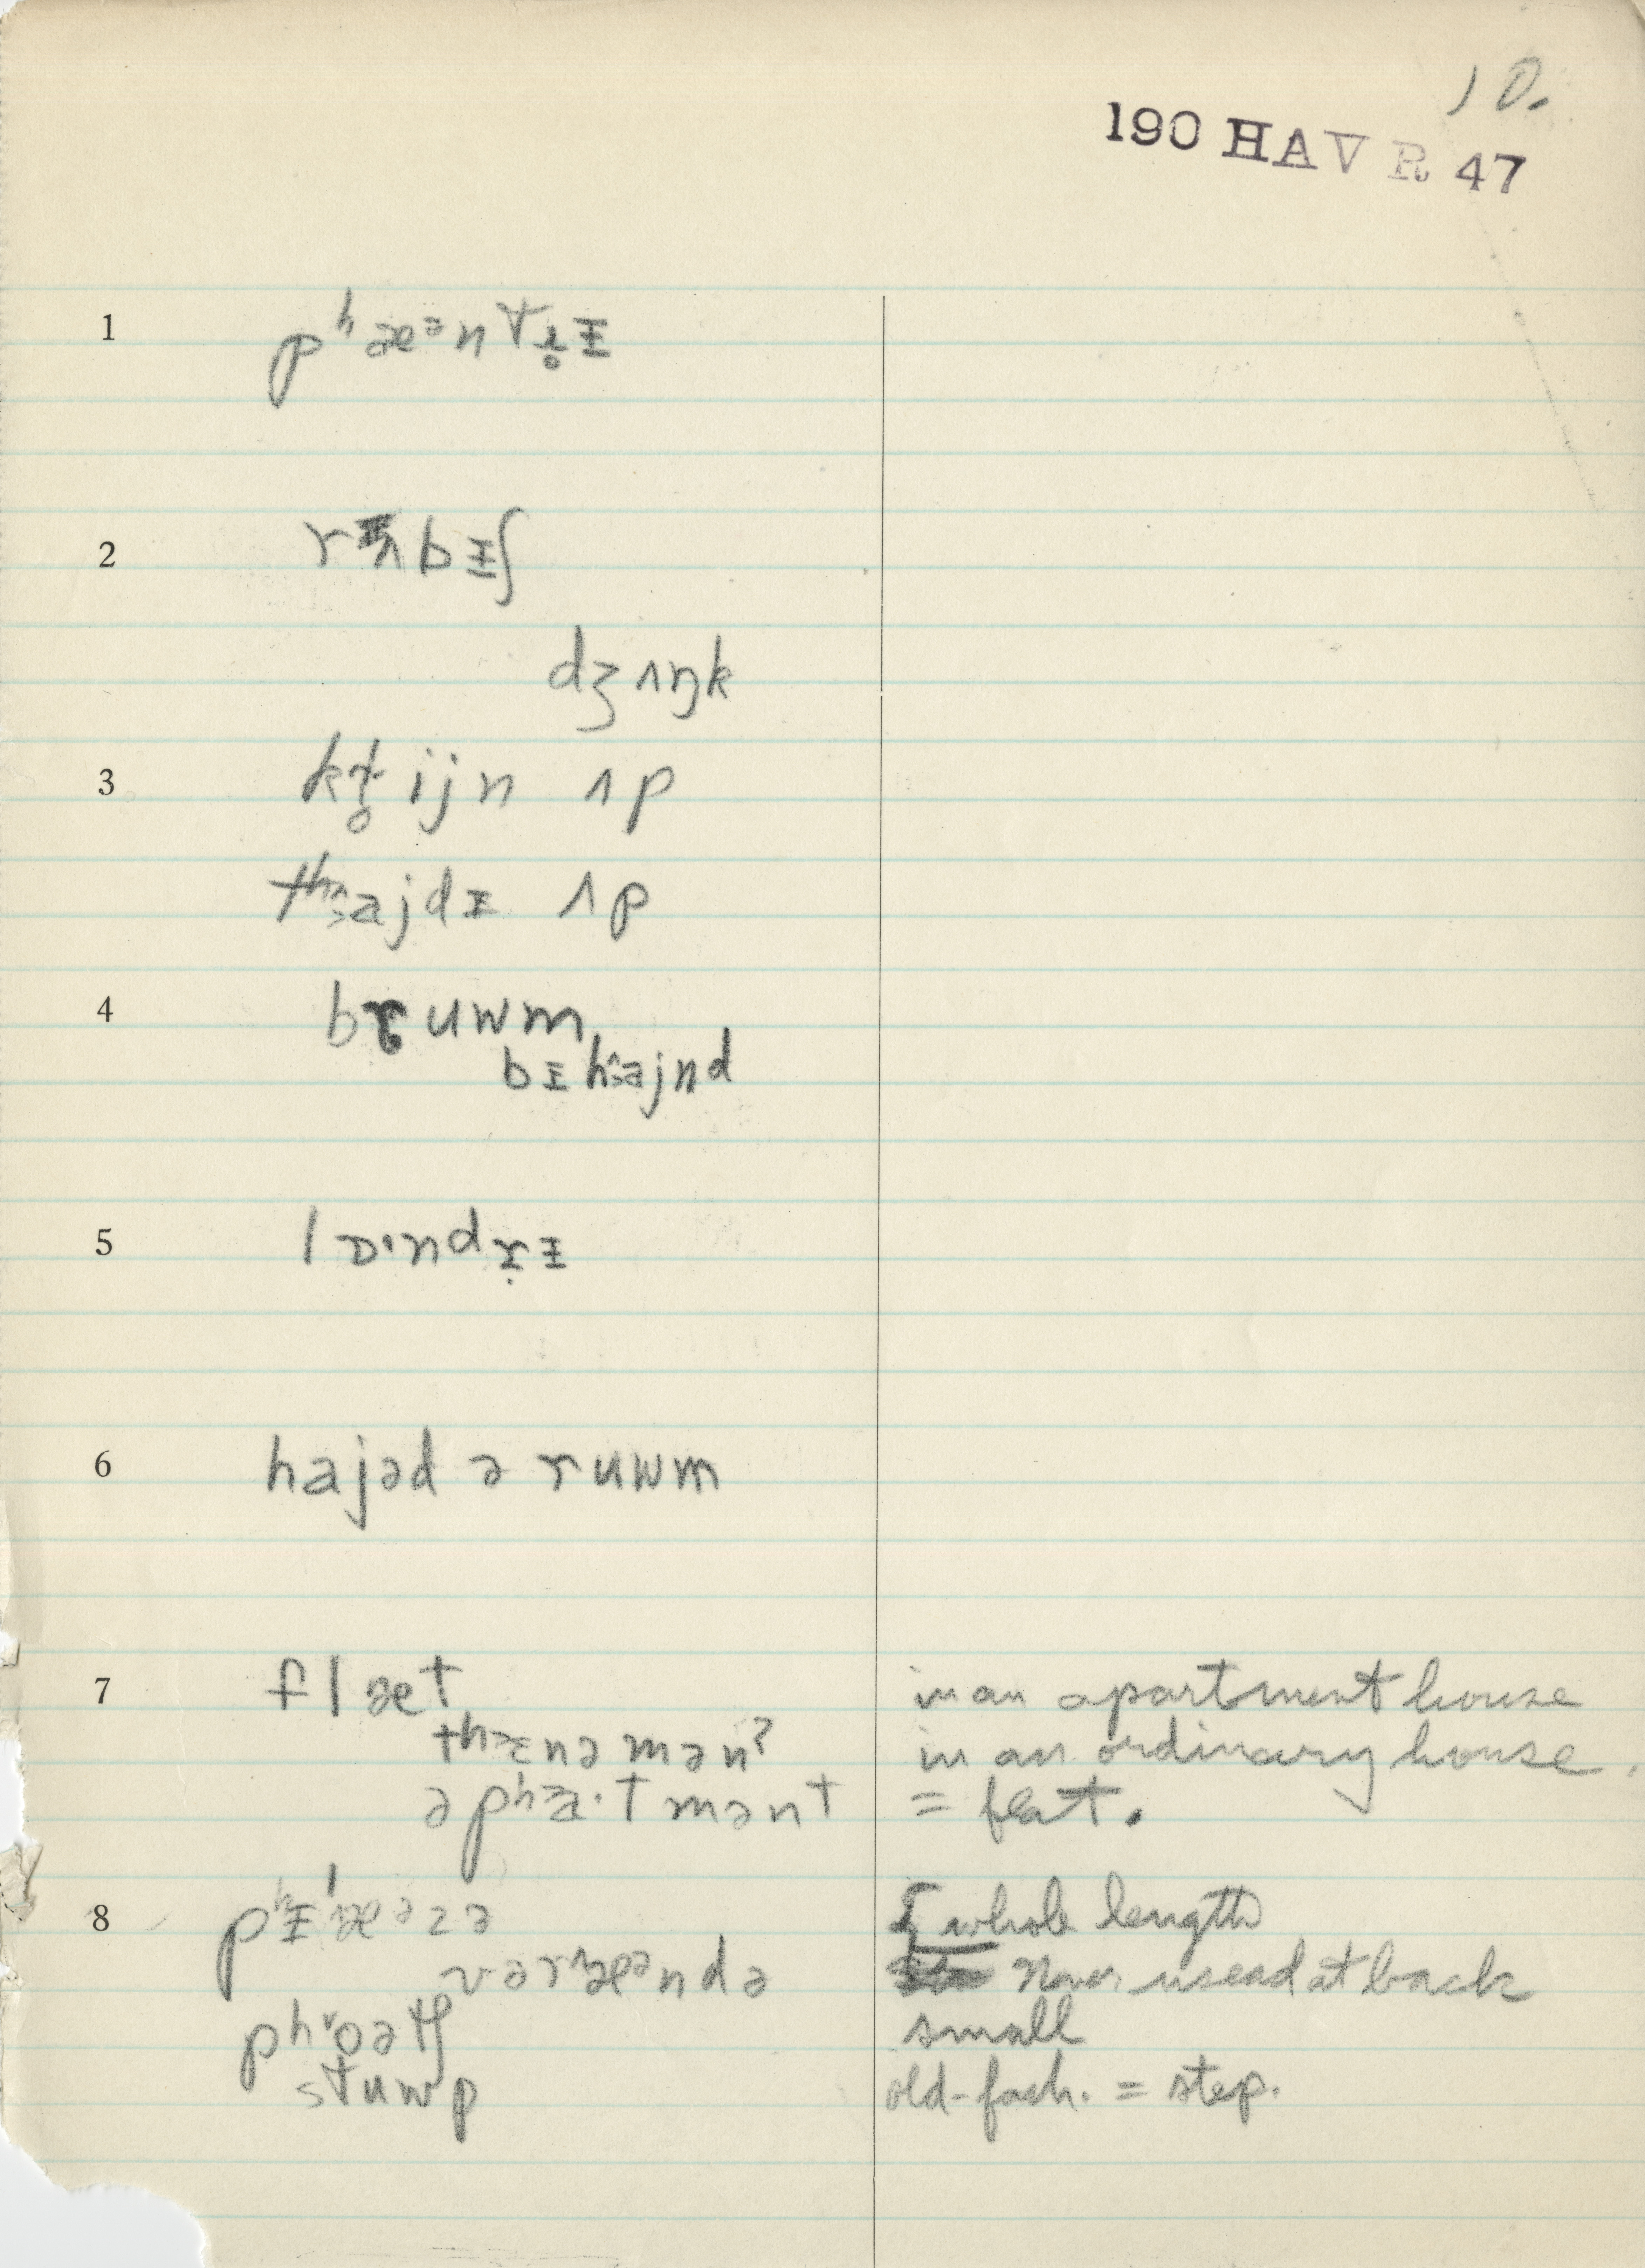 10.
190 HAV R 47
1 pʰæᵊntɹ̥ɪ
2 rʌbɪʃ
dʒʌŋk
3 kɹ̥ijn ʌp
tʰajdɪ ʌp
4 bruwm
bɪhajnd
5 lɒ·ndrɪ
6 hajəd ə ruwm
7 flæt in an apartment house
tʰɛnəmənʔ in an ordinary house.
əpʰa·tmənt = flat.
8 pʰɪˈæᵊzə whole length
vəræᵊndə Never used at back
pʰoətʃ small
stuwp old-fash. = step.